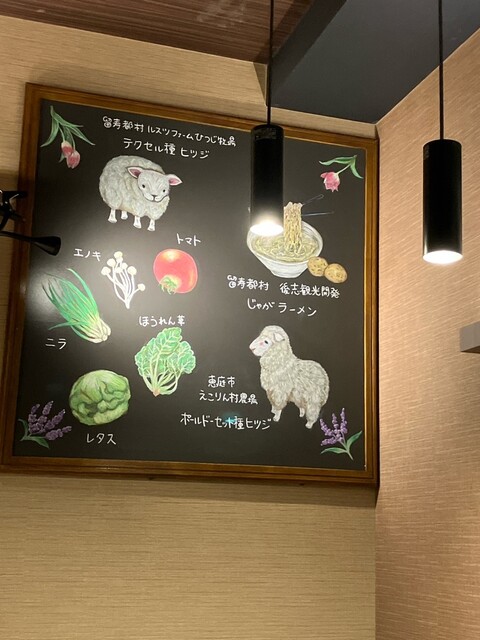 留寿都村 ルスツファームひつじ牧場
テクセル種 ヒツジ
トマト
エノキ
留寿都村 後志観光開発
じゃがラーメン
ほうれん草
ニラ
恵庭市
えこりん村農場
ポールドーセット種ヒツジ
レタス